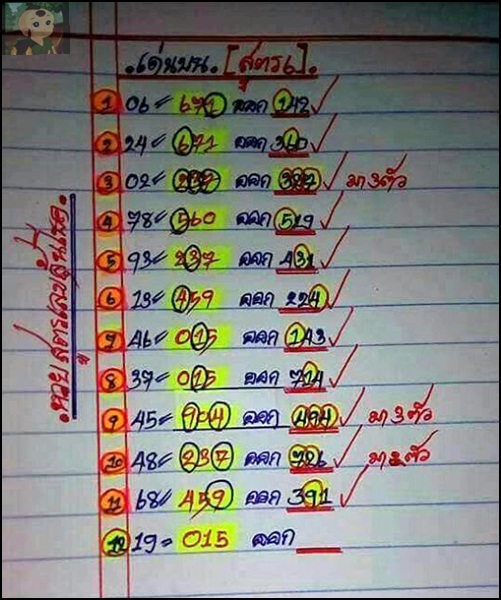 เด่นบน. [สูตร6].
1 06 = 671 ออก 142 ✓
2 24 = 671 ออก 360 ✓
3 02 = 237 ออก 327 ✓ มา 3 ตัว
4 78 = 560 ออก 519 ✓
5 93 = 237 ออก 431 ✓
6 13 = 459 ออก 224 ✓
7 46 = 015 ออก 143 ✓
8 37 = 015 ออก 714 ✓
9 45 = 904 ออก 494 ✓ มา 3 ตัว
10 48 = 237 ออก 726 ✓ มา 2 ตัว
11 68 = 459 ออก 391 ✓
12 19 = 015 ออก